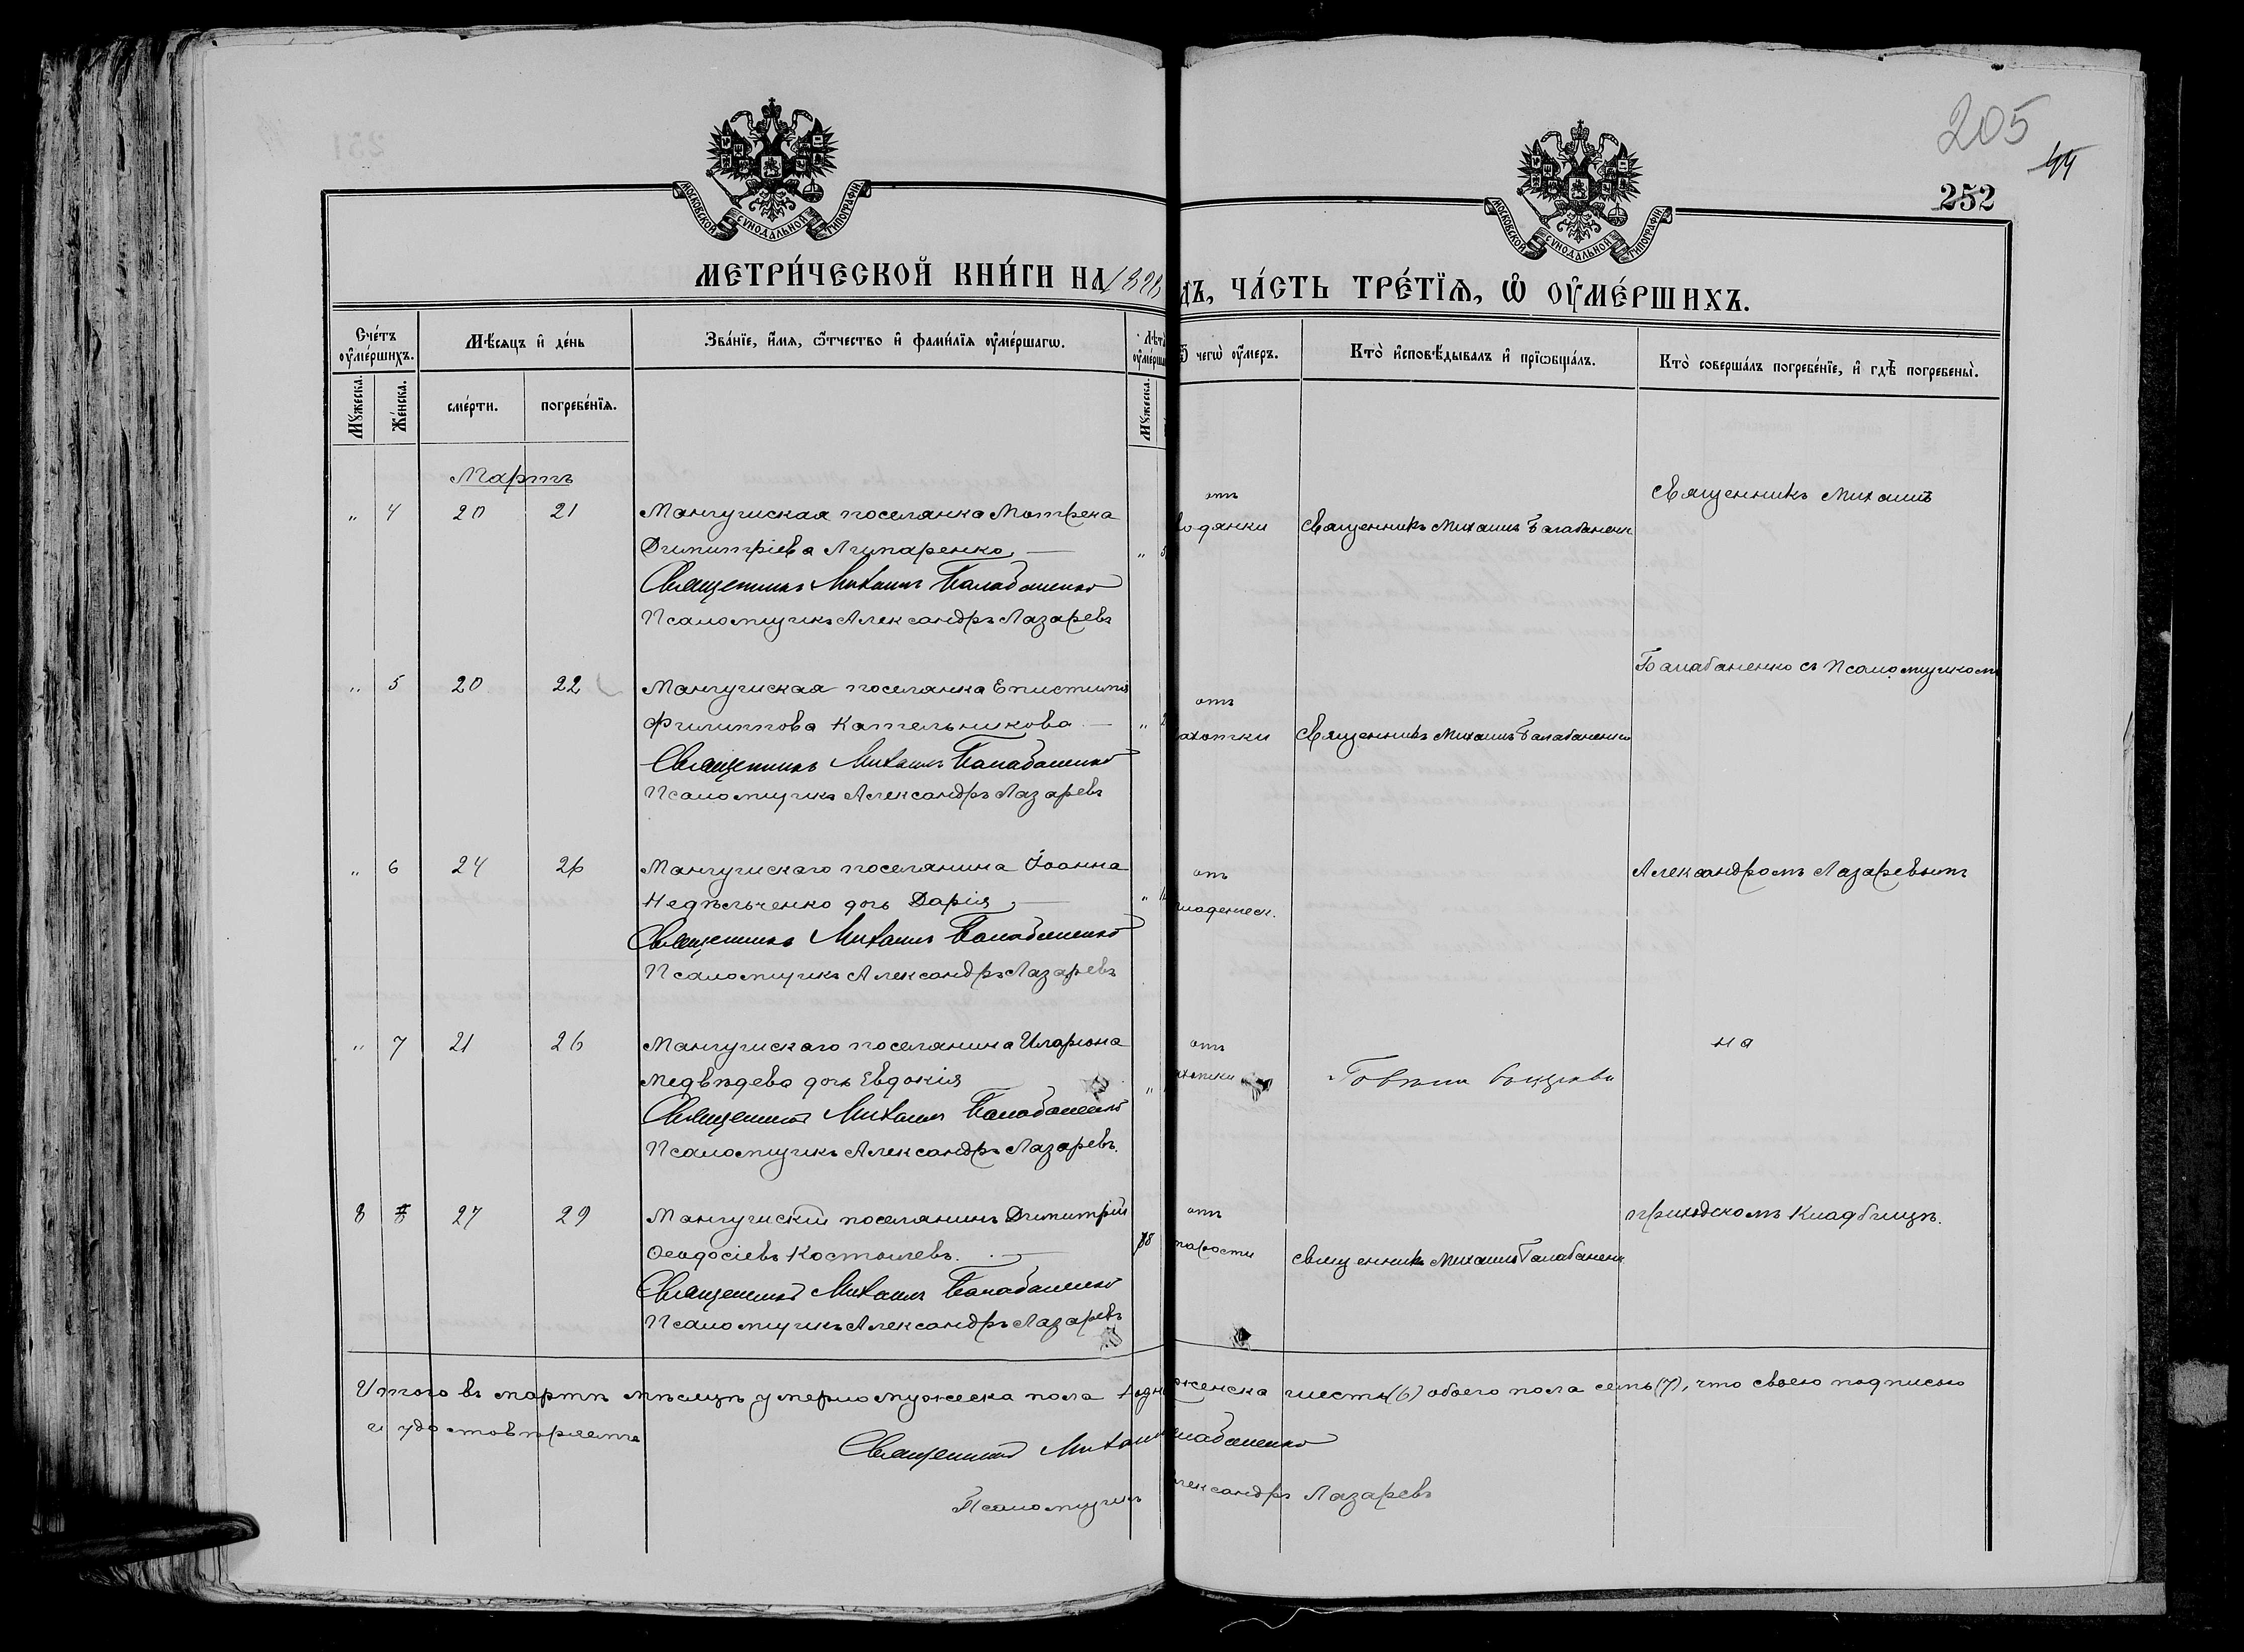 205
44
252
МОСКОВСКОЙ СУНОДАЛЬНОЙ ТИПОГРАФІИ
МОСКОВСКОЙ СУНОДАЛЬНОЙ ТИПОГРАФІИ
МЕТРИ́ЧЕСКОЙ КНИ́ГИ НА
ДЪ, ЧА́СТЬ ТРЕ́ТЇѦ, Ѽ ОУ҆МЕ́РШИХЪ.
Сче́тъ оу҆ме́ршихъ.
Мѣ́сяцъ и҆ де́нь
Зва́нїе, и҆́мя, ѻ҆́тчество и҆ фами́лїя оу҆ме́ршагѡ.
Лѣ́т
оу҆ме́рша
Ѿ чегѡ̀ оу҆́меръ.
Кто̀ и҆сповѣ́дывалъ и҆ прїѡбща́лъ.
Кто̀ соверша́лъ погребе́нїе, и҆ гдѣ̀ погребены̀.
Мꙋ́жеска.
Же́нска.
сме́рти.
погребе́нїя.
Мꙋ́жеска.
Мартъ
„ 4 20 21 Мангушская поселянка Матрена
Димитріева
Священникъ Михаилъ Балабаненко
Псаломщикъ Александръ Лазаревъ
отъ
водянки
Священникъ Михаилъ Балабаненк
Священникъ Михаилъ
„ 5 20 22 Мангушская поселянка Епистимія
Филиппова Котельникова
Священникъ Михаилъ Балабаненко
Псаломщикъ Александръ Лазаревъ
отъ
ахотки
Священникъ Михаилъ Балабаненко
Балабаненко съ Псаломщикомъ
„ 6 24 26 Мангушскаго поселянина Іоанна
Недѣльченко дочь Дарія
Священникъ Михаилъ Балабаненко
Псаломщикъ Александръ Лазаревъ
отъ
младенческ.
Александромъ Лазаревымъ
„ 7 21 26 Мангушскаго поселянина Иларіона
Медвѣдева дочь Евдокія
Священникъ Михаилъ Балабаненко
Псаломщикъ Александръ Лазаревъ.
отъ
ахотки
на
8 27 29 Мангушскій поселянинъ Димитрій
Ѳеодосіевъ Костылевъ.
Священникъ Михаилъ Балабаненко
Псаломщикъ Александръ Лазаревъ
отъ
тарости
священникъ Михаилъ Балабаненк
приходскомъ Кладбищѣ.
Итого въ мартѣ мѣсяцѣ умерло мужеска пола 1 одн женска шесть (6) обоего пола семь (7), что своею подписью
и удостовѣряемъ
Священникъ Михаилъ лабаненко
Псаломщикъ лександръ Лазаревъ